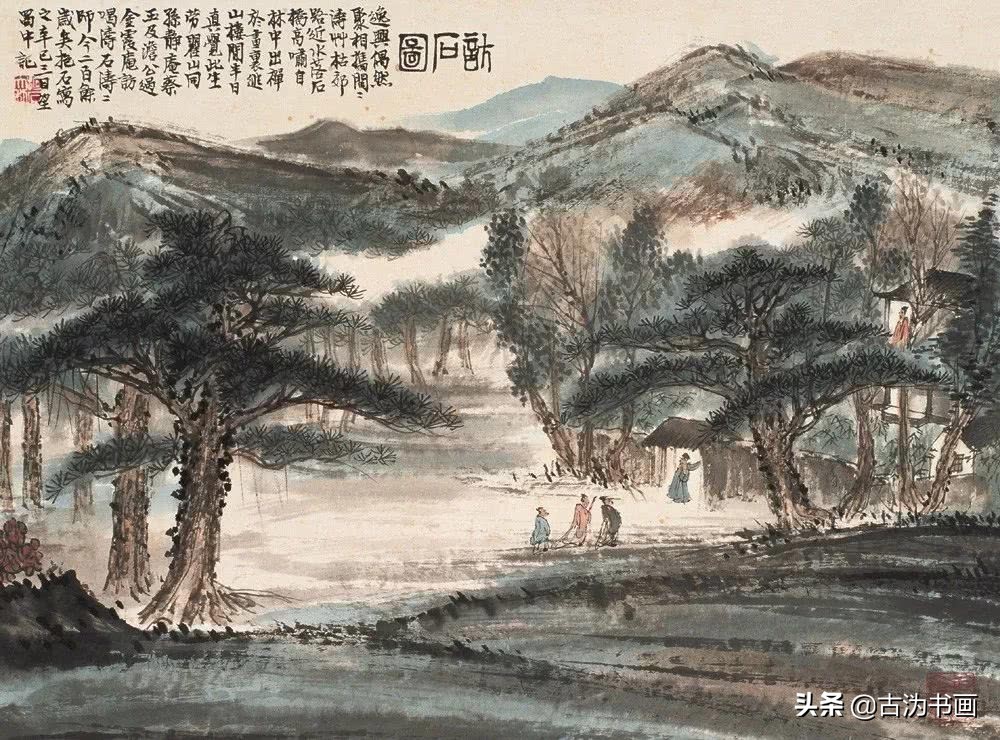 訪石圖
逸興偶然
聚相攜問二
濤艸枯郊
路近水落石
橋高嘯自
林中出禪
於畫裏逃
山樓閒半日
真覺此生
勞瞿山同
孫靜庵蔡
玉及澹公過
金霞庵訪
喝濤石濤二
師今二百餘
歲矣抱石寫
之辛巳二月望
蜀中記
头条 @古沩书画